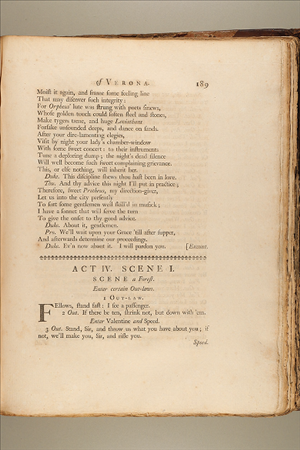 of VERONA. 189
Moist it again, and frame some feeling line
That may discover such integrity:
For Orpheus' lute was strung with poets sinews,
Whose golden touch could soften steel and stones,
Make tygers tame, and huge Leviathans
Forsake unsounded deeps, and dance on sands.
After your dire-lamenting elegies,
Visit by night your lady's chamber-window
With some sweet consort: to their instruments
Tune a deploring dump; the night's dead silence
Will well become such sweet complaining grievance.
This, or else nothing, will inherit her.
Duke. This discipline shews thou hast been in love.
Thu. And thy advice this night I'll put in practice;
Therefore, sweet Protheus, my direction-giver,
Let us into the city presently
To sort some gentlemen well skill'd in musick;
I have a sonnet that will serve the turn
To give the onset to thy good advice.
Duke. About it, gentlemen.
Pro. We'll wait upon your Grace 'till after supper,
And afterwards determine our proceedings.
Duke. Ev'n now about it. I will pardon you. [Exeunt.
ACT IV. SCENE I.
SCENE a Forest.
Enter certain Out-laws.
1 OUT-LAW.
FEllows, stand fast: I see a passenger.
2 Out. If there be ten, shrink not, but down with 'em.
Enter Valentine and Speed.
3 Out. Stand, Sir, and throw us what you have about you; if
not, we'll make you, Sir, and rifle you.
Speed.